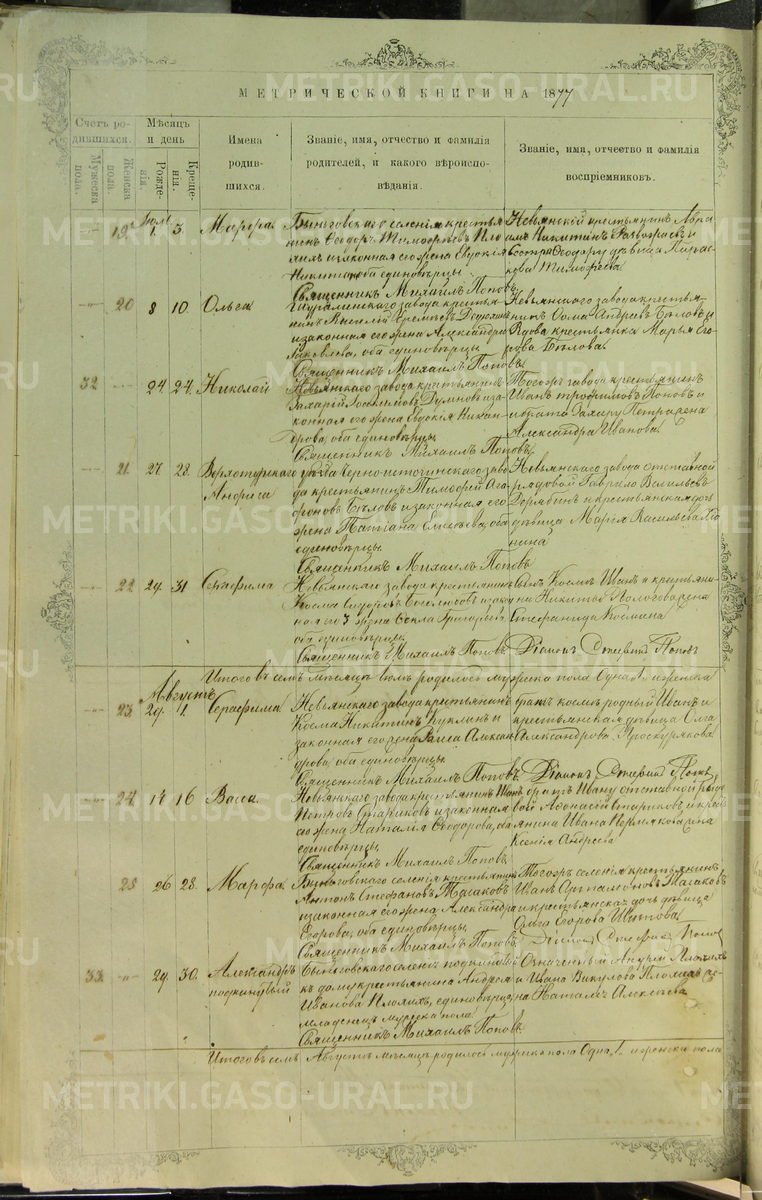 МЕТРИЧЕСКОЙ КНИГИ НА 1877
Счетъ родившихся.
Мужеска пола.
Женска пола.
Мѣсяцъ и день
Рожденія.
Крещенія.
Имена родившихся.
Званіе, имя, отчество и фамилія родителей, и какого вѣроисповѣданія.
Званіе, имя, отчество и фамилія воспріемниковъ.
19. Іюля 1. 3. Марѳа.
Быньговскаго селенія крестья
нинъ Ѳеодоръ Тимофѣевъ
и законная его жена Евдокія
Никитина, оба единовѣрцы.
Священникъ Михаилъ Поповъ
Невьянскій крестьянинъ
Никитинъ
сестра Ѳеодору дѣвица Парас
кова Тимофѣева
20 8 10. Ольга
завода крестья
нинъ Василій
и законная его жена Александра
Яковлева, оба единовѣрцы
Священникъ Михаилъ Поповъ.
Невьянскаго завода крестья
нинъ Ѳома Андреевъ Бѣловъ и
Вдова крестьянка Марья Его
рова Бѣлова.
32 24. 24. Николай
Невьянскаго завода крестьянинъ
Захарій Думновъ и за
конная его жена Евдокія Никан
дрова, оба единовѣрцы.
Священникъ Михаилъ Поповъ.
Тогоже завода крестьянинъ
Иванъ Трофимовъ Поповъ и
брата Захару Петра жена
Александра Иванова.
21. 27. 28. Анфиса
Верхотурскаго уѣзда Черноисточинскаго заво
да крестьянинъ Тимофей Ага
фоновъ Бѣловъ и законная его
жена Татіана Елисѣева, оба
единовѣрцы.
Священникъ Михаилъ Поповъ
Невьянскаго завода отставной
рядовой Гаврило Васильевъ
Дерябинъ и крестьянская дочь
дѣвица Марія Васильева
22 29. 31 Серафима
Невьянскаго завода крестьянинъ
Косма Сидоровъ
ная его 3 жена Ѳекла Григорьева
оба единовѣрцы.
Священникъ Михаилъ Поповъ
сынъ Космы Иванъ и крестьяни
на Никиты жена
Стефанида Космина
Діаконъ Поповъ
Итого въ семъ мѣсяцѣ іюлѣ родилось мужеска пола Одна 1. и женска
23. Августъ 29. 1. Серафима
Невьянскаго завода крестьянинъ
Косма Никитинъ Куклинъ и
законная его жена Раиса Алексан
дрова, оба единовѣрцы.
Священникъ Михаилъ Поповъ
братъ Космѣ родный Иванъ и
крестьянская дѣвица Ольга
Александрова Проскурякова
Діаконъ Поповъ
24. 14 16 Васса.
Невьянскаго завода крестьянинъ Иванъ
Петровъ Стариковъ и законная
его жена Наталія Ѳеодорова, оба
единовѣрцы.
Священникъ Михаилъ Поповъ.
братъ Ивану отставной рядо
вой Афонасій Стариковъ и кресть
янина Ивана Пермякова жена
Ксенія Андреева
25 26 28. Марѳа.
Быньговскаго селенія крестьянинъ
Антонъ Стефановъ Магаковъ
и законная его жена Александра
Егорова, оба единовѣрцы.
Священникъ Михаилъ Поповъ
Тогоже селенія крестьянинъ
Иванъ Артамоновъ Магаковъ
и крестьянская дочь дѣвица
Ольга Егорова
Діаконъ Поповъ
33. 29. 30. Александръ подкинутый
Быньговскаго селенія подкинутый
къ дому крестьянина Андрея
Иванова Плохихъ, единовѣрца,
младенецъ мужеска пола.
Священникъ Михаилъ Поповъ.
Означенный Андрей Плохихъ
и Ивана Викулова Плохихъ же
на Наталія Алексѣева
Итого въ семъ Августѣ мѣсяцѣ родилось мужеска пола Одна 1. и женска пола
METRIKI.GASO-URAL.RU